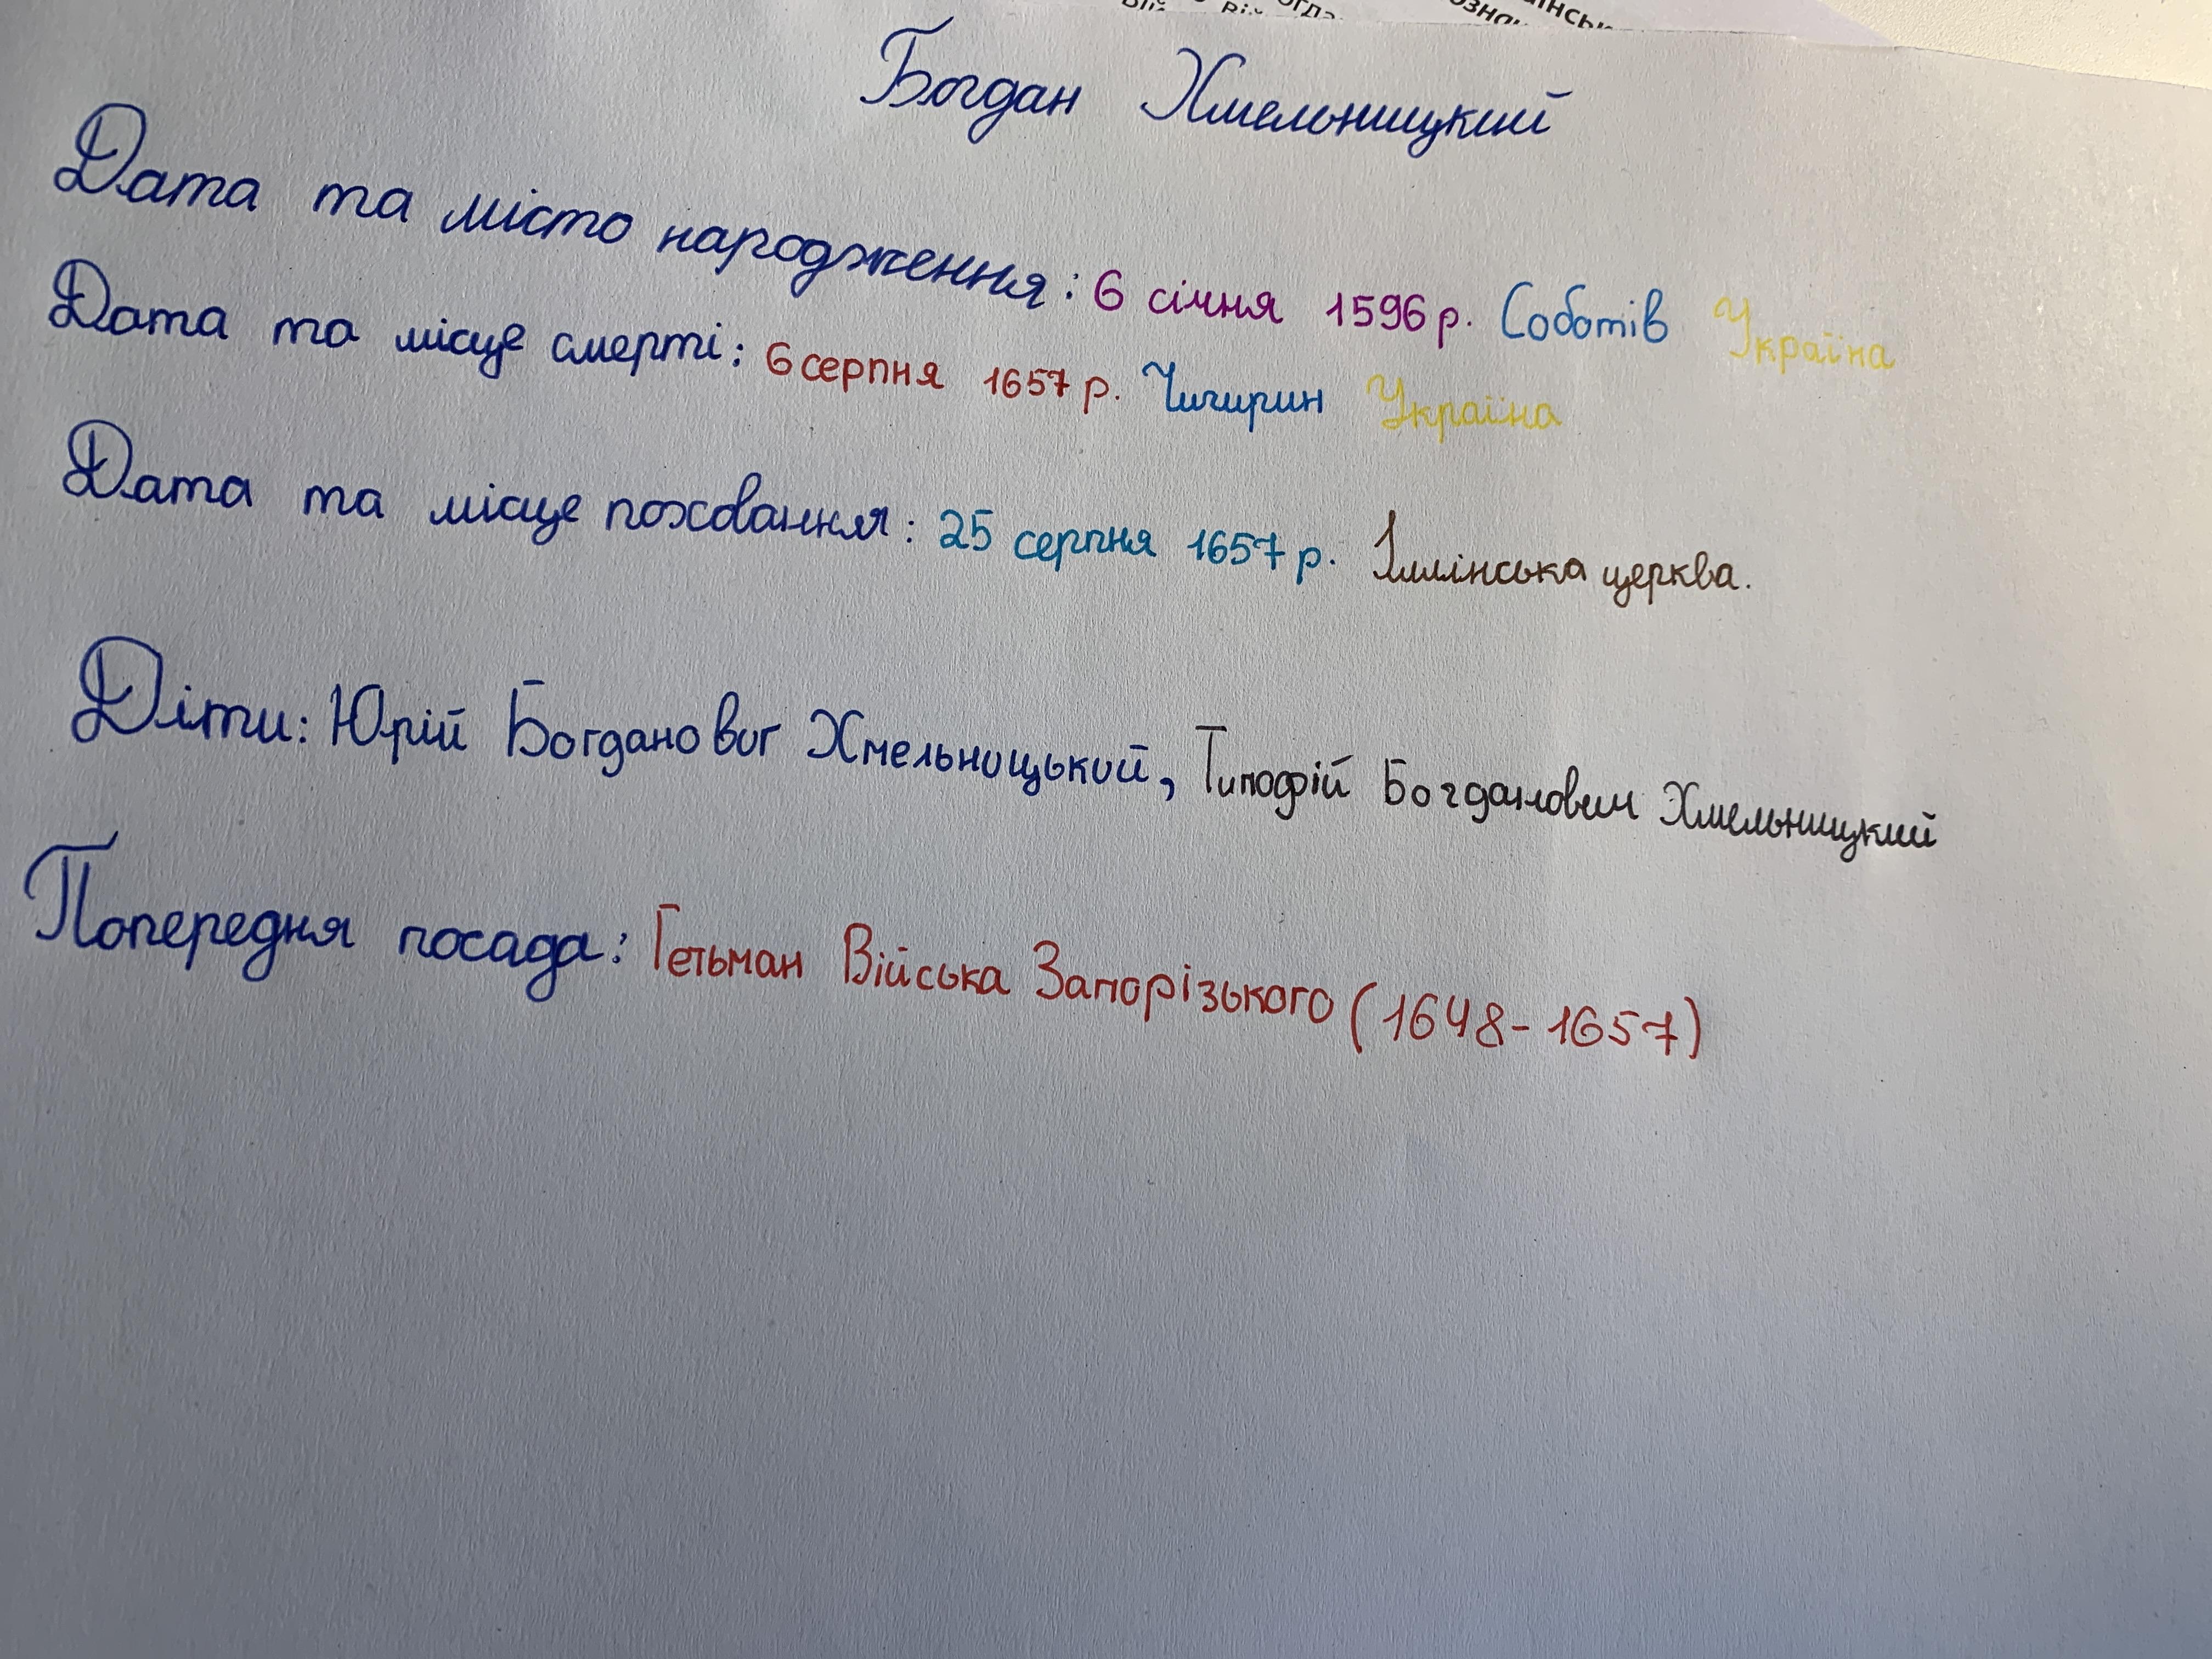 Богдан Хмельницкий
Дата та місто народження: 6 січня 1596 р. Соботів Україна
Дата та місце смерті: 6 серпня 1657 р. Чигирин Україна
Дата та місце поховання: 25 серпня 1657 р. Іллінська церква.
Діти: Юрій Богданович Хмельницький, Тимофій Богданович Хмельницкий
Попередня посада: Гетьман Війська Запорізького (1648-1657)